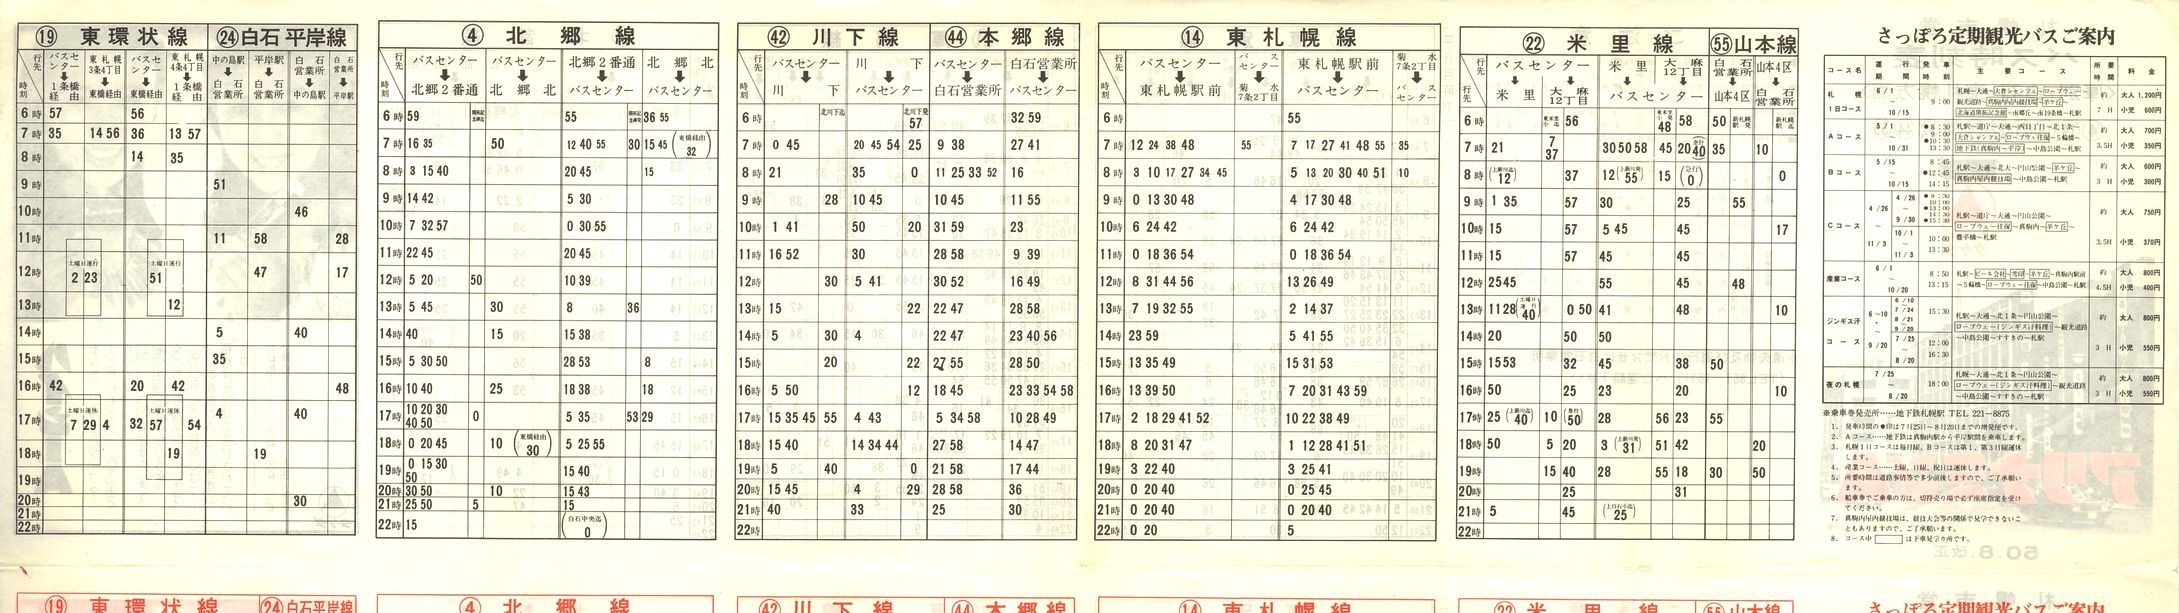 ⑲ 東環状線 ㉔白石平岸線
行先 時刻
バスセンター ➡ 1条橋経由
東札幌3条4丁目 ➡ 東橋経由
バスセンター ➡ 東橋経由
東札幌4条4丁目 ➡ 1条橋経由
中の島駅 ➡ 白石営業所
平岸駅 ➡ 白石営業所
白石営業所 ➡ 中の島駅
白石営業所 ➡ 平岸駅
6時 57 56
7時 35 14 56 36 13 57
8時 14 35
9時 51
10時 46
11時 11 58 28
土曜日運行 土曜日運行
12時 2 23 51 47 17
13時 12
14時 5 40
15時 35
16時 42 20 42 48
土曜日運休 土曜日運休
17時 7 29 4 32 57 54 4 40
18時 19 19
19時
20時 30
21時
22時
④ 北郷線
行先 時刻
バスセンター ➡ 北郷2番通
バスセンター ➡ 北郷北
北郷2番通 ➡ バスセンター
北郷北 ➡ バスセンター
6時 59 55 36 55
7時 16 35 50 12 40 55 30 15 45 (東橋経由 32)
8時 3 15 40 20 45 15
9時 14 42 5 30
10時 7 32 57 0 30 55
11時 22 45 20 45
12時 5 20 50 10 39
13時 5 45 30 8 36
14時 40 15 15 38
15時 5 30 50 28 53 8
16時 10 40 25 18 38 18
17時 10 20 30 40 50 0 5 35 53 29
18時 0 20 45 10 (東橋経由 30) 5 25 55
19時 0 15 30 50 15 40
20時 30 50 10 15 43
21時 25 50 5 15
22時 15 (白石中央迄 0)
㊷ 川下線 ㊹ 本郷線
行先 時刻
バスセンター ➡ 川下
川下 ➡ バスセンター
バスセンター ➡ 白石営業所
白石営業所 ➡ バスセンター
6時 北川下迄 北川下発 57 32 59
7時 0 45 20 45 54 25 9 38 27 41
8時 21 35 0 11 25 33 52 16
9時 28 10 45 10 45 11 55
10時 1 41 50 20 31 59 23
11時 16 52 30 28 58 9 39
12時 30 5 41 30 52 16 49
13時 15 22 22 47 28 58
14時 5 30 4 22 47 23 40 56
15時 20 22 27 55 28 50
16時 5 50 12 18 45 23 33 54 58
17時 15 35 45 55 4 43 5 34 58 10 28 49
18時 15 40 14 34 44 27 58 14 47
19時 5 40 0 21 58 17 44
20時 15 45 4 29 28 58 36
21時 40 33 25 30
22時
⑭ 東札幌線
行先 時刻
バスセンター ➡ 東札幌駅前
バスセンター ➡ 菊水7条2丁目
東札幌駅前 ➡ バスセンター
菊水7条2丁目 ➡ バスセンター
6時 55 55
7時 12 24 38 48 55 7 17 27 41 48 55 35
8時 3 10 17 27 34 45 5 13 20 30 40 51 10
9時 0 13 30 48 4 17 30 48
10時 6 24 42 6 24 42
11時 0 18 36 54 0 18 36 54
12時 8 31 44 56 13 26 49
13時 7 19 32 55 2 14 37
14時 23 59 5 41 55
15時 13 35 49 15 31 53
16時 13 39 50 7 20 31 43 59
17時 2 18 29 41 52 10 22 38 49
18時 8 20 31 47 1 12 28 41 51
19時 3 22 40 3 25 41
20時 0 20 40 0 25 45
21時 0 20 40 0 20 40
22時 0 20 5
㉒ 米里線 55山本線
行先 時刻
バスセンター ➡ 米里
バスセンター ➡ 大麻12丁目
米里 ➡ バスセンター
大麻12丁目 ➡ バスセンター
白石営業所 ➡ 山本4区
山本4区 ➡ 白石営業所
6時 56 48 58 50
7時 21 7 37 30 50 58 45 20 (急行 40) 35 10
8時 (上新川迄 12) 37 12 (上新川発 55) 15 (急行 0) 0
9時 1 35 57 30 25 55
10時 15 57 5 45 45 17
11時 15 57 45 45
12時 25 45 55 45 48
13時 11 28 (土曜日運行 40) 0 50 41 48 10
14時 20 50 50
15時 15 53 32 45 38 50
16時 50 25 23 20 10
17時 25 (上新川迄 40) 10 (急行 50) 28 56 23 55
18時 50 5 20 3 (上新川発 31) 51 42 20
19時 15 40 28 55 18 30 50
20時 25 31
21時 5 45 (上白石小迄 25)
22時
さっぽろ定期観光バスご案内
コース名 運行期間 発車時刻 主要コース 所要時間 料金
札幌1日コース 6/1～10/15 9:00 札幌～大通～大倉シャンツェ～ロープウェー～観光道路～真駒内屋内競技場～羊ケ丘～北海道開拓記念館～南郷丘～南19条橋～札駅 約7H 大人1,200円 小児600円
Aコース 5/1～10/31 ●8:30 9:00 ●10:30 13:30 札駅～道庁～大通～西11丁目～北1条～大倉シャンツェ～ロープウェー往復～5輪橋～地下鉄(真駒内～平岸)～中島公園～札駅 約3.5H 大人700円 小児350円
Bコース 5/15～10/15 8:45 ●12:45 14:15 札駅～大通～北大～円山公園～羊ケ丘～真駒内屋内競技場～中島公園～札駅 約3H 大人600円 小児300円
Cコース 4/26～11/3 4/26～9/30 10/1～11/3 10:00 13:30 札駅～道庁～大通～円山公園～ロープウェー往復～真駒内～羊ケ丘～豊平橋～札駅 約3.5H 大人750円 小児370円
産業コース 6/1～10/20 8:50 13:15 札駅～ビール会社～雪印～羊ケ丘～真駒内駅前～5輪橋～ロープウェー往復～中島公園～札駅 約4.5H 大人800円 小児400円
ジンギス汗コース 6～10～9/20 6/10～7/24 8/21～9/20 15:30 7/25～8/20 12:00 16:30 札駅～大通～北1条～円山公園～ロープウェー(ジンギス汗料理)～観光道路～中島公園～すすきの～札駅 約3H 大人800円 小児550円
夜の札幌 7/25～8/20 18:00 札駅～大通～北1条～円山公園～ロープウェー(ジンギス汗料理)～観光道路～中島公園～すすきの～札駅 約3H 大人800円 小児550円
※乗車券発売所……地下鉄札幌駅 TEL 221－8875
1. 発車時間の●印は7月25日～8月20日までの増発便です。
2. Aコース……地下鉄は真駒内駅から平岸駅間を乗車します。
3. 札幌1日コースは毎月曜、Bコースは第1、第3月曜運休します。
4. 産業コース……土曜、日曜、祝日は運休します。
5. 所要時間は道路事情等で多少前後しますので、ご了承願います。
6. 船車券でご乗車の方は、切符売り場で必ず座席指定を受けてください。
7. 真駒内屋内競技場は、競技大会等の関係で見学できないこともありますので、ご了承願います。
8. コース中□は下車見学カ所です。
⑲ 東環状線 ㉔白石平岸線
④ 北郷線
㊷ 川下線 ㊹ 本郷線
⑭ 東札幌線
㉒ 米里線 55山本線
さっぽろ定期観光バスご案内